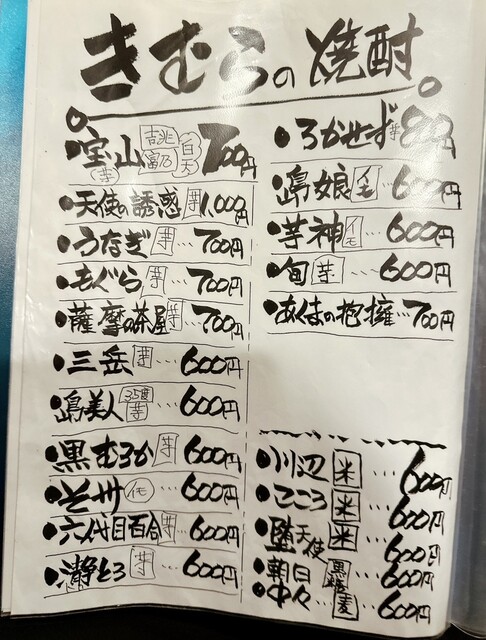 きむらの焼酎
宝山(芋) 吉兆 富乃 白天 700円
・天使の誘惑 芋 1,000円
・うなぎ 芋 … 700円
・もぐら 芋 … 700円
・薩摩の茶屋 芋 … 700円
・三岳 芋 … 600円
・島美人 35度 芋 … 600円
・黒むろか 芋 … 600円
・そ サ イモ … 600円
・六代目百合 芋 … 600円
・ とろ 芋 … 600円
・ろかせず 芋 800円
・島娘 イモ … 600円
・芋神 イモ … 600円
・旬 芋 … 600円
・あくまの抱擁 … 700円
・川辺 米 … 600円
・こころ 米 … 600円
・堕天使 米 … 600円
・朝日 黒糖 … 600円
・中々 麦 … 600円